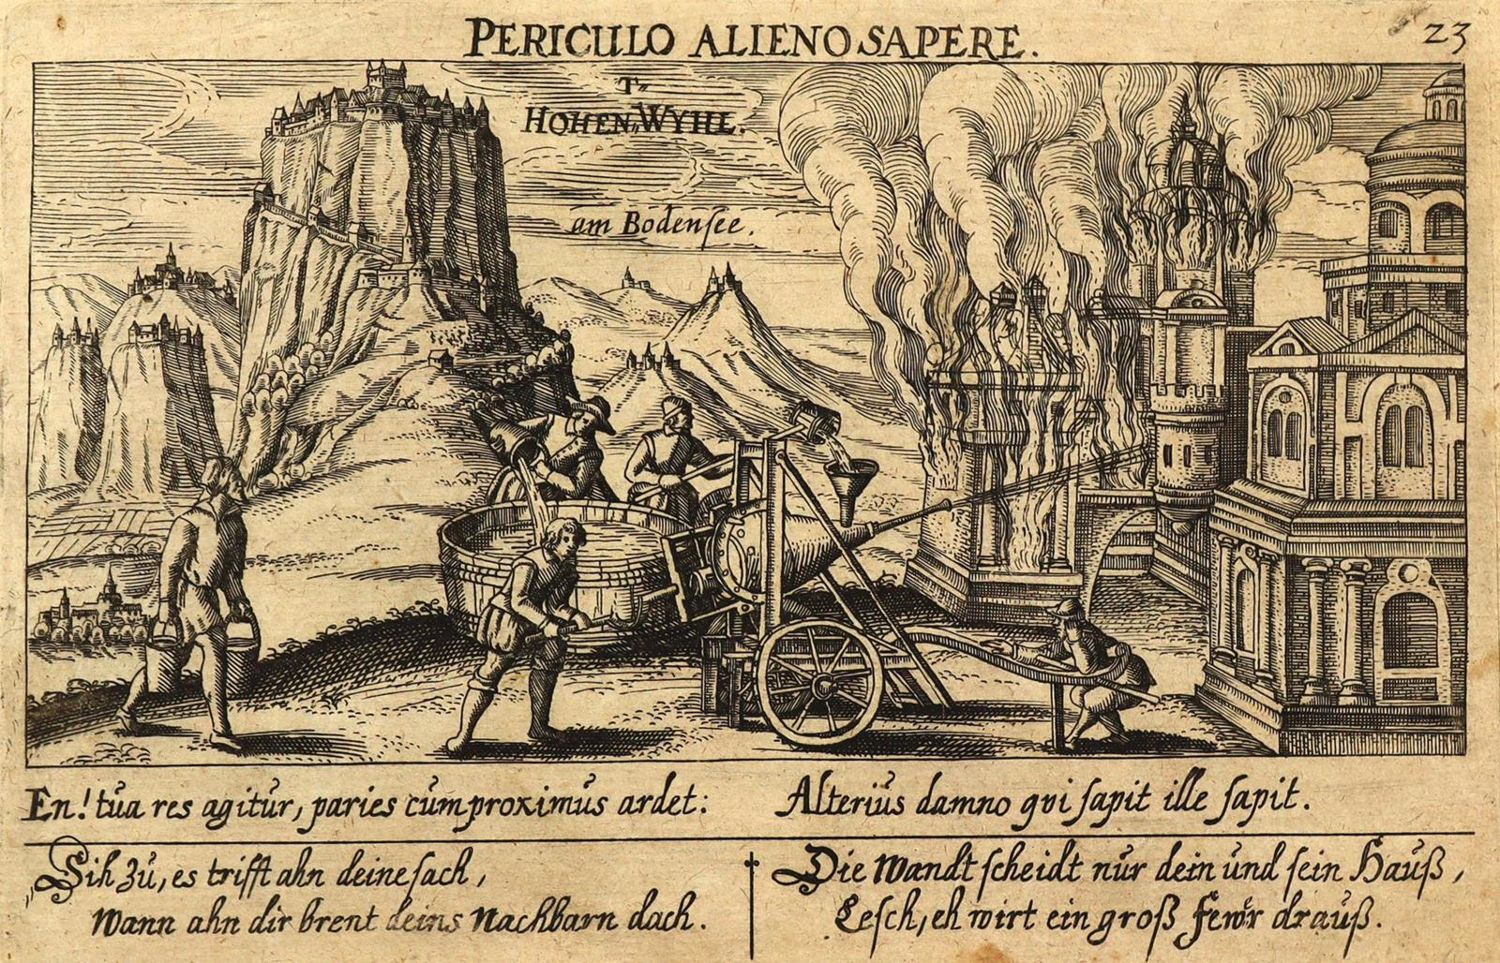 PERICULO ALIENO SAPERE.
23
T"
HOHEN"WYHL.
am Bodenſee.
En! tua res agitur, paries cum proximus ardet:
Alterius damno qui ſapit ille ſapit.
Sih zu, es trifft ahn deine ſach,
Wann ahn dir brent deins Nachbarn dach.
Die Wandt ſcheidt nur dein und ſein Hauß,
Leſch, eh wirt ein groß Fewr drauß.